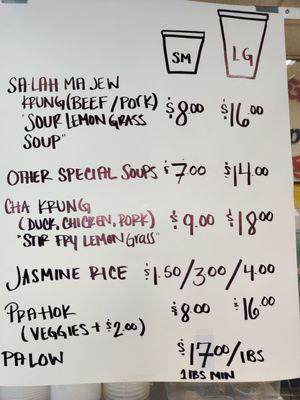 SM LG
SALAH MAJEW
KRUNG (BEEF/PORK) $8.00 $16.00
"SOUR LEMON GRASS
SOUP"
OTHER SPECIAL SOUPS $7.00 $14.00
CHA KRUNG
(DUCK, CHICKEN, PORK) $9.00 $18.00
"STIR FRY LEMON GrasS"
JASMINE RICE $1.50/3.00/4.00
PRAHOK $8.00 $16.00
(VEGGIES + $2.00)
PALOW $17.00/LBS
1 LBS MIN